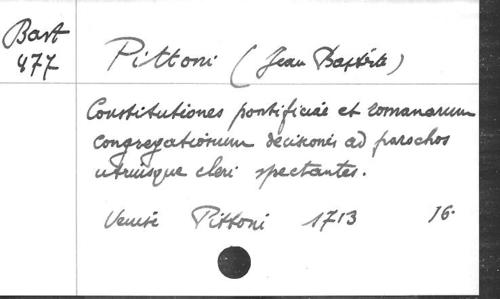 Bast
477
Pittoni (Jean Baptiste)
Constitutiones pontificiae et romanarum
congregationum decisiones ad parochos
utriusque cleri spectantes.
Venise Pittoni 1713 16.